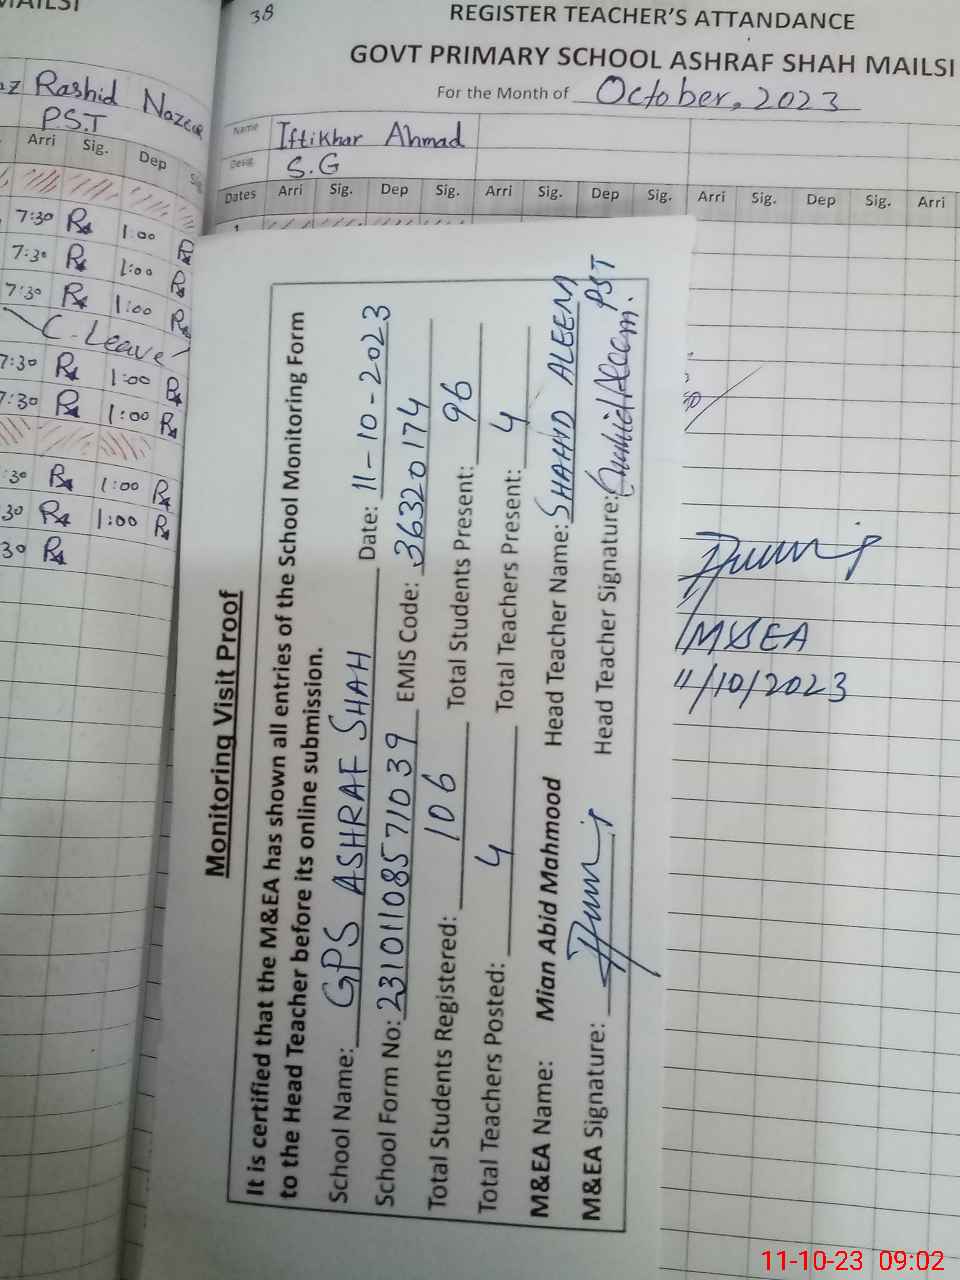 MAILSI
Rashid Nazeer
P.S.T
Arri Sig. Dep
7:30 1:00
7:30 1:00
7:30 1:00
C. Leave
7:30 1:00
7:30 1:00
:30 1:00
30 1:00
30
38
REGISTER TEACHER'S ATTANDANCE
GOVT PRIMARY SCHOOL ASHRAF SHAH MAILSI
For the Month of October, 2023
Name Iftikhar Ahmad
Desig. S.G
Dates Arri Sig. Dep Sig. Arri Sig. Dep Sig. Arri Sig. Dep Sig. Arri
1
Monitoring Visit Proof
It is certified that the M&EA has shown all entries of the School Monitoring Form
to the Head Teacher before its online submission.
School Name: GPS ASHRAF SHAH Date: 11-10-2023
School Form No: 23101108571039 EMIS Code: 36320174
Total Students Registered: 106 Total Students Present: 96
Total Teachers Posted: 4 Total Teachers Present: 4
M&EA Name: Mian Abid Mahmood Head Teacher Name: SHAHID ALEEM PST
M&EA Signature: Head Teacher Signature: Shahid Aleem.
M&EA
11/10/2023
11-10-23 09:02